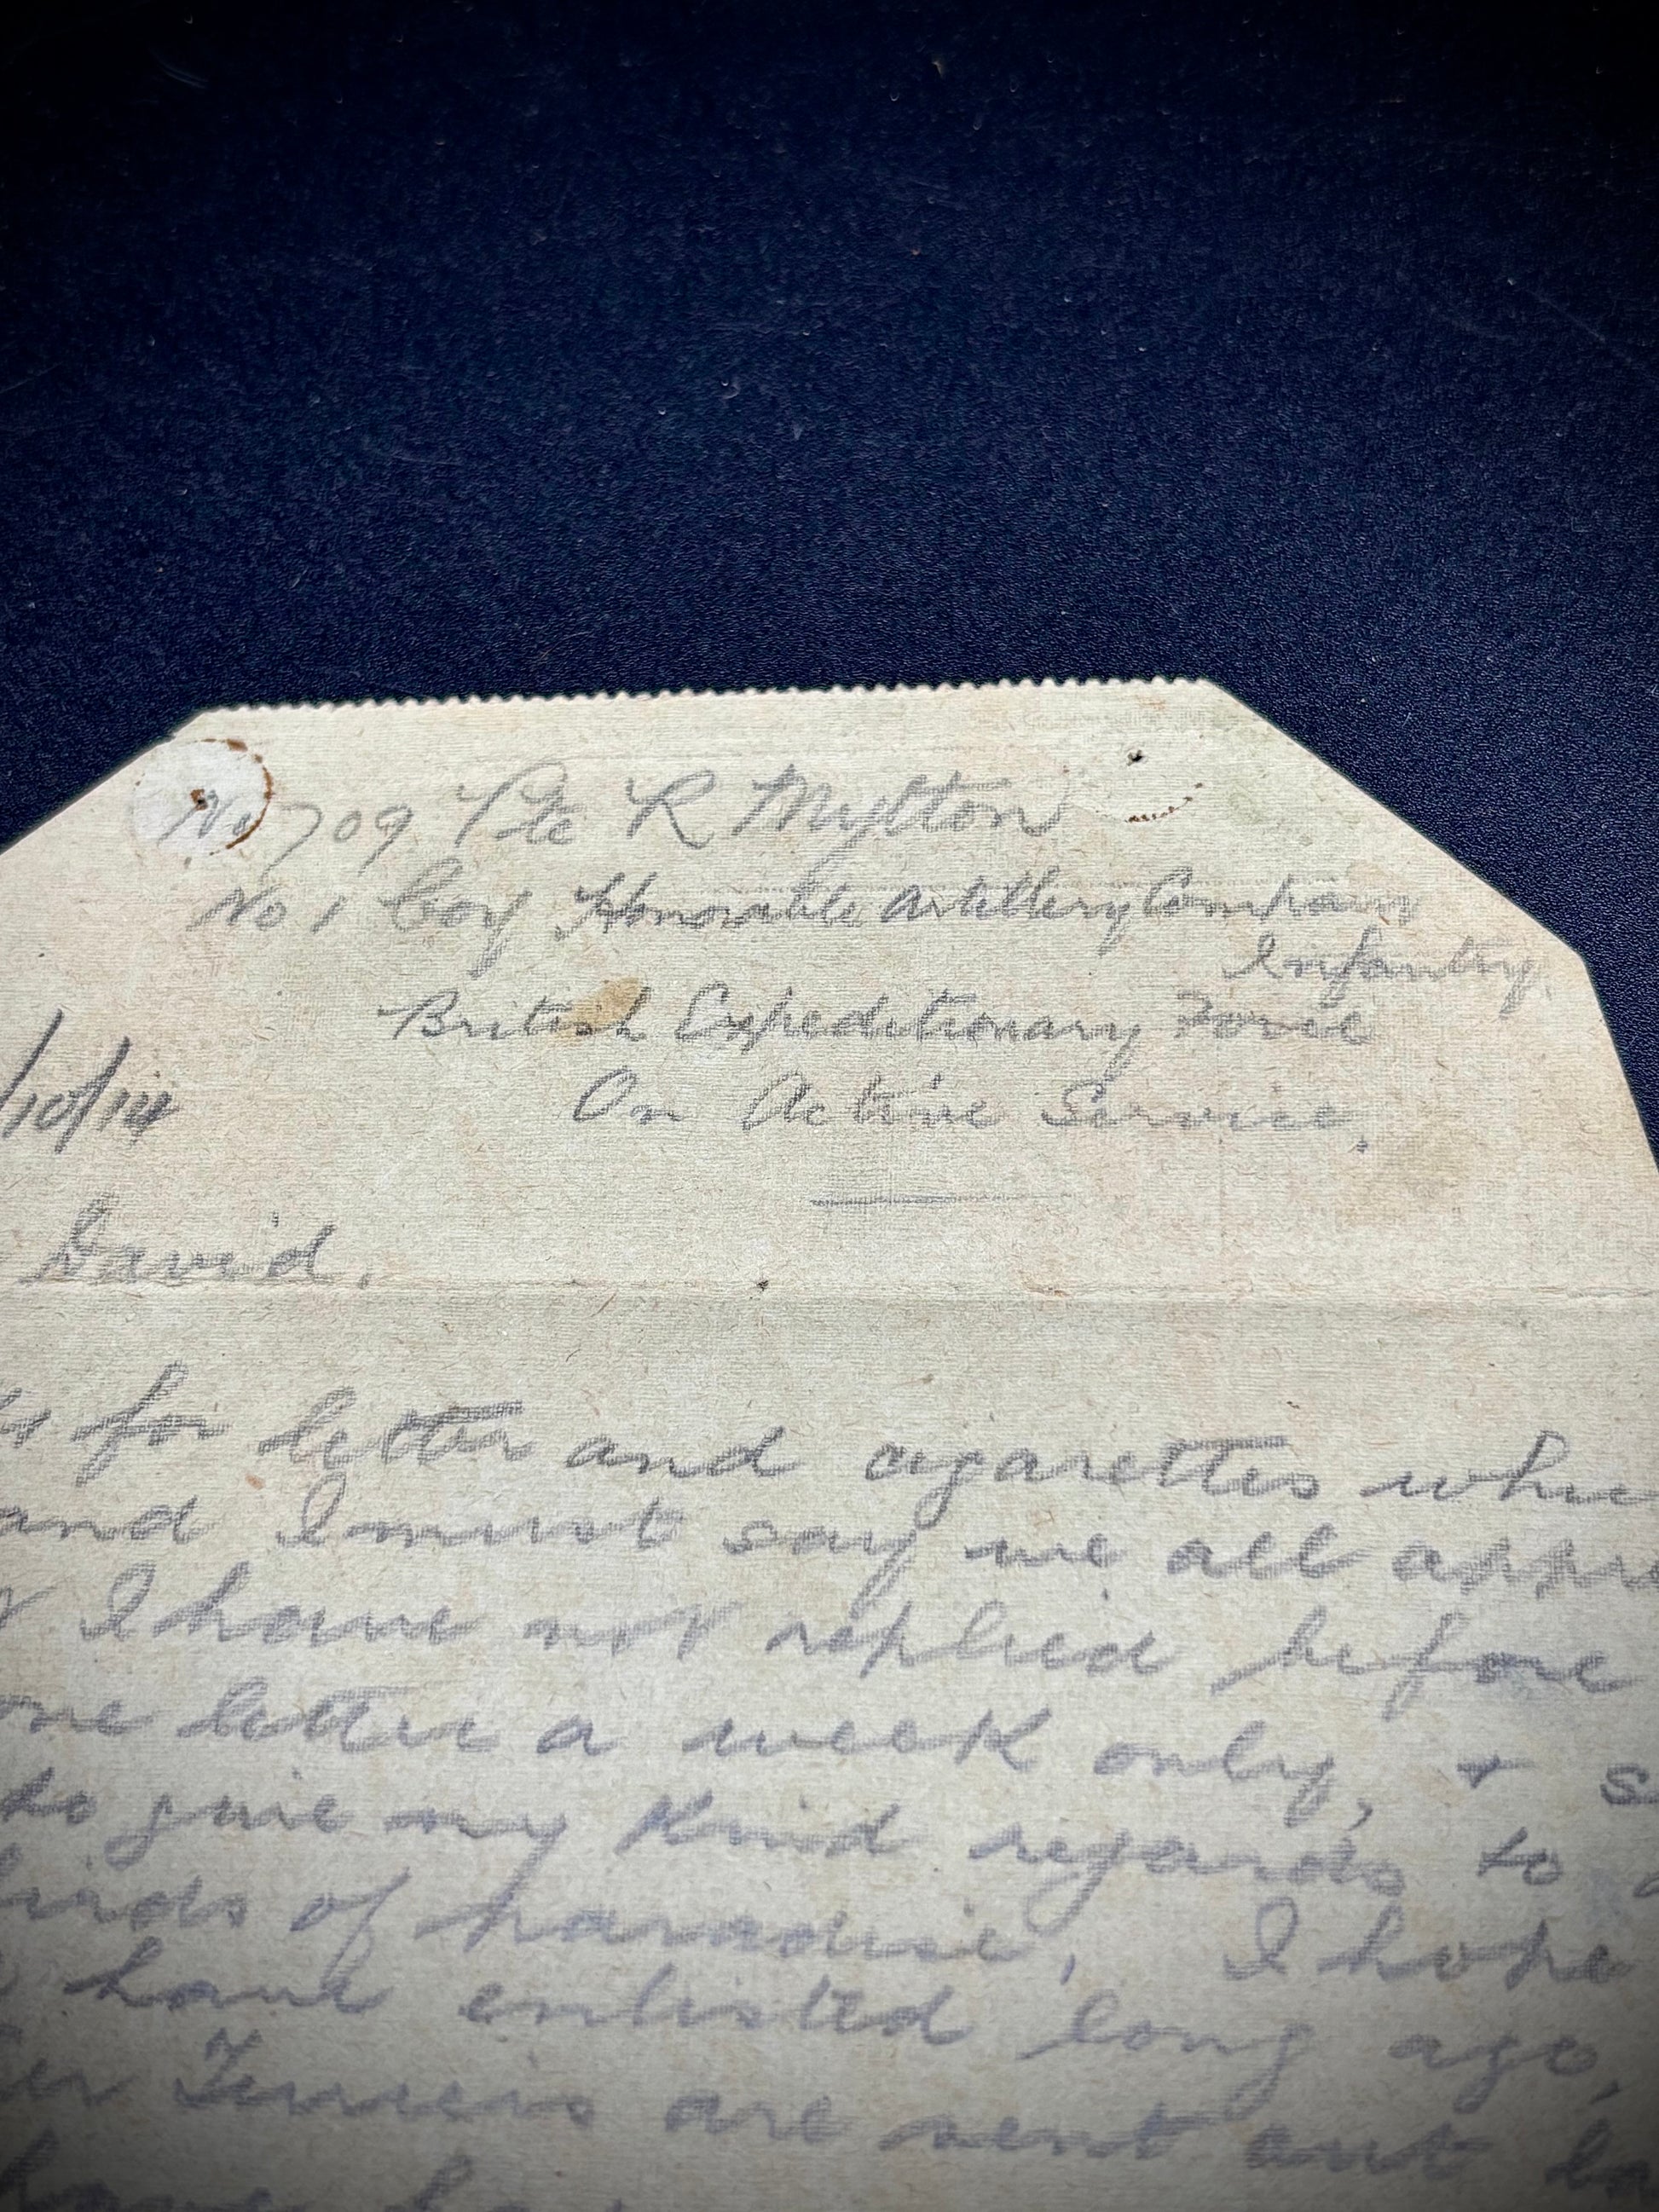 No 709 Pte R Mylton
No 1 Coy Honorable Artillery Company
Infantry.
British Expeditionary Force
On Active Service.
/10/14
David.
for letter and cigarettes whic
and I must say we all appre
I have not replied before
one letter a week only, + s
to give my kind regards to
birds of paradise, I hope
have enlisted long ago,
Terriers are sent out
have